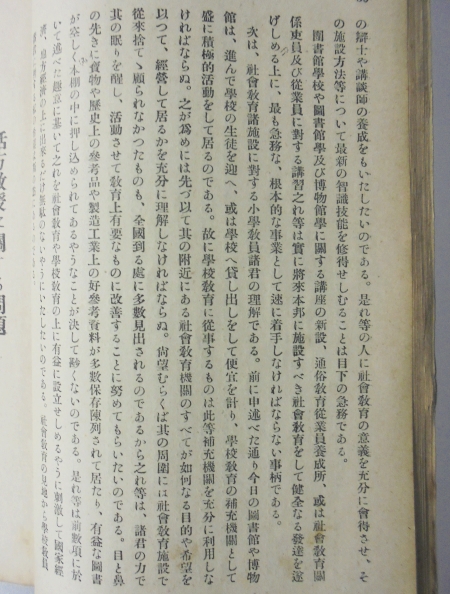 の辯士や講談師の養成をもいたしたいのである。是れ等の人に社會敎育の意義を充分に會得させ、そ
の施設方法等について最新の智識技能を修得せしむることは目下の急務である。
圖書館學校や圖書館學及び博物館學に關する講座の新設、通俗敎育從業員養成所、或は社會敎育關
係吏員及び從業員に對する講習之れ等は實に將來本邦に施設すべき社會敎育をして健全なる發達を遂
げしめる上に、最も急務な、根本的な事業として速に着手しなければならない事柄である。
次は、社會敎育諸施設に對する小學敎員諸君の理解である。前に申述べた通り今日の圖書館や博物
館は、進んで學校の生徒を迎へ、或は學校へ貸し出しをして便宜を計り、學校敎育の補充機關として
盛に積極的活動をして居るのである。故に學校敎育に從事するものは此等補充機關を充分に利用しな
ければならぬ。之が爲めには先づ以て其の附近にある社會敎育機關のすべてが如何なる目的や希望を
以つて、經營して居るかを充分に理解しなければならぬ。尙望むらくは其の周圍には社會敎育施設で
從來捨てゝ顧られなかつたものも、全國到る處に多數見出されるのであるから之れ等は、諸君の力で
其の眠りを醒し、活動させて敎育上有要なものに改善することに努めてもらいたいのである。目と鼻
の先きに寶物や歷史上の參考品や製造工業上の好參考資料が多數保存陳列されて居たり、有益な圖書
が空しく本棚の中に押し込められてあるやうなことが決して尠くないのである。是れ等は前數項に於
いて述べた趣意に基いて之れを社會敎育や學校敎育の上に有益に設立せしめるやうに刺激して國家經
濟、地方經濟の上に出來るだけ無駄のないやうにいたしたいのである。社會敎育の見地から學校敎員